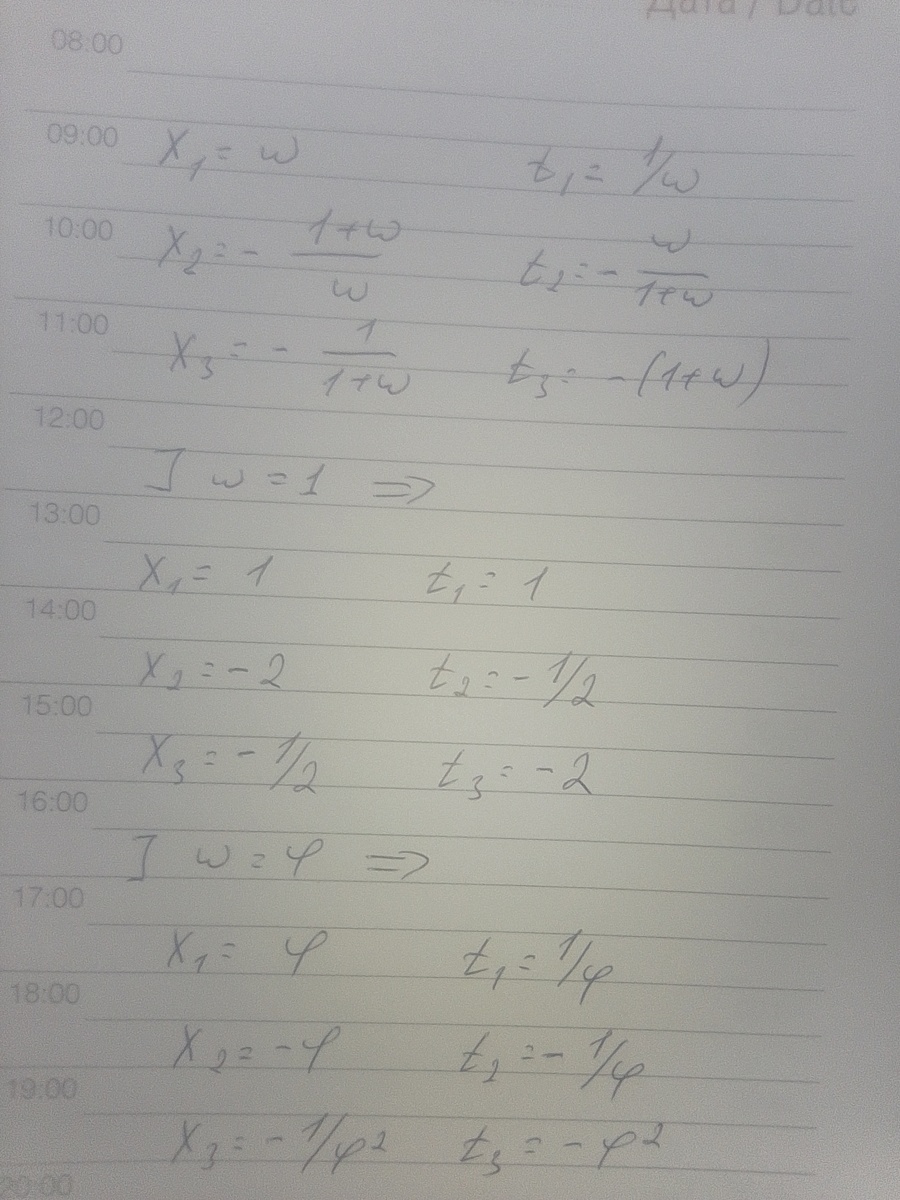 Дата / Date
08:00
09:00 x₁ = ω t₁ = 1/ω
10:00 x₂ = - (1+ω)/ω t₂ = - ω/(1+ω)
11:00 x₃ = - 1/(1+ω) t₃ = -(1+ω)
12:00
] ω = 1 ⇒
13:00
x₁ = 1 t₁ = 1
14:00
x₂ = -2 t₂ = -1/2
15:00
x₃ = -1/2 t₃ = -2
16:00
] ω = φ ⇒
17:00
x₁ = φ t₁ = 1/φ
18:00
x₂ = -φ t₂ = -1/φ
19:00
x₃ = -1/φ² t₃ = -φ²
20:00